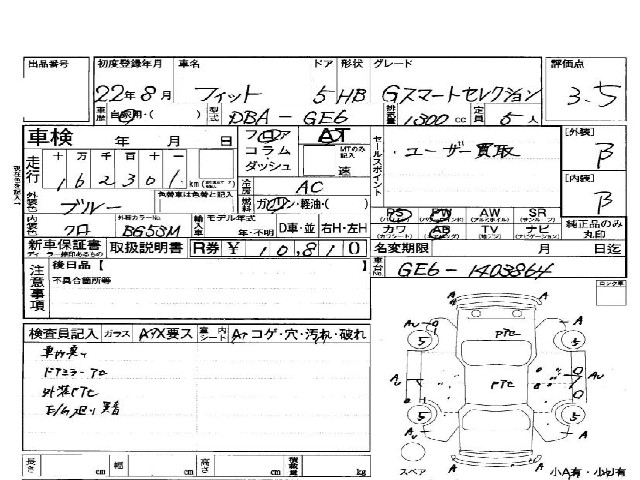 出品番号 初度登録年月 車名 ドア 形状 グレード 評価点
22年8月 フィット 5 HB Gスマートセレクション 3.5
車歴 自家用・( ) 型式 DBA-GE6 排気量 1300cc 定員 5人
車検 年 月 日 フロア AT
コラム MTのみ記入
ダッシュ 速
走行 十 万 千 百 十 一
162301 km
セールスポイント ・ユーザー買取
[外装] B
[内装] B
外装色 ブルー 色替車は色替と記入
冷房 AC
燃料 ガソリン・軽油・( )
内装色 クロ 外装カラーNo B655M
輸入車 モデル年式 年・不明 D車・並 右H・左H
PS PW AW SR
カワ AB TV ナビ 純正品のみ丸印
新車保証書 取扱説明書 R券 ¥ 10,810
名変期限 月 日迄
車台No GE6-1403864
注意事項 後日品【 】
不具合箇所等
ロング車
検査員記入 ガラス AアX要ス 車内シート Aァ コゲ・穴・汚れ・破れ
ドアミラーTC
外装PTC
PTC
PTC
A
5 5
5 5
スペア
小A有・小U有
長さ cm 幅 cm 高さ cm 積載量 kg